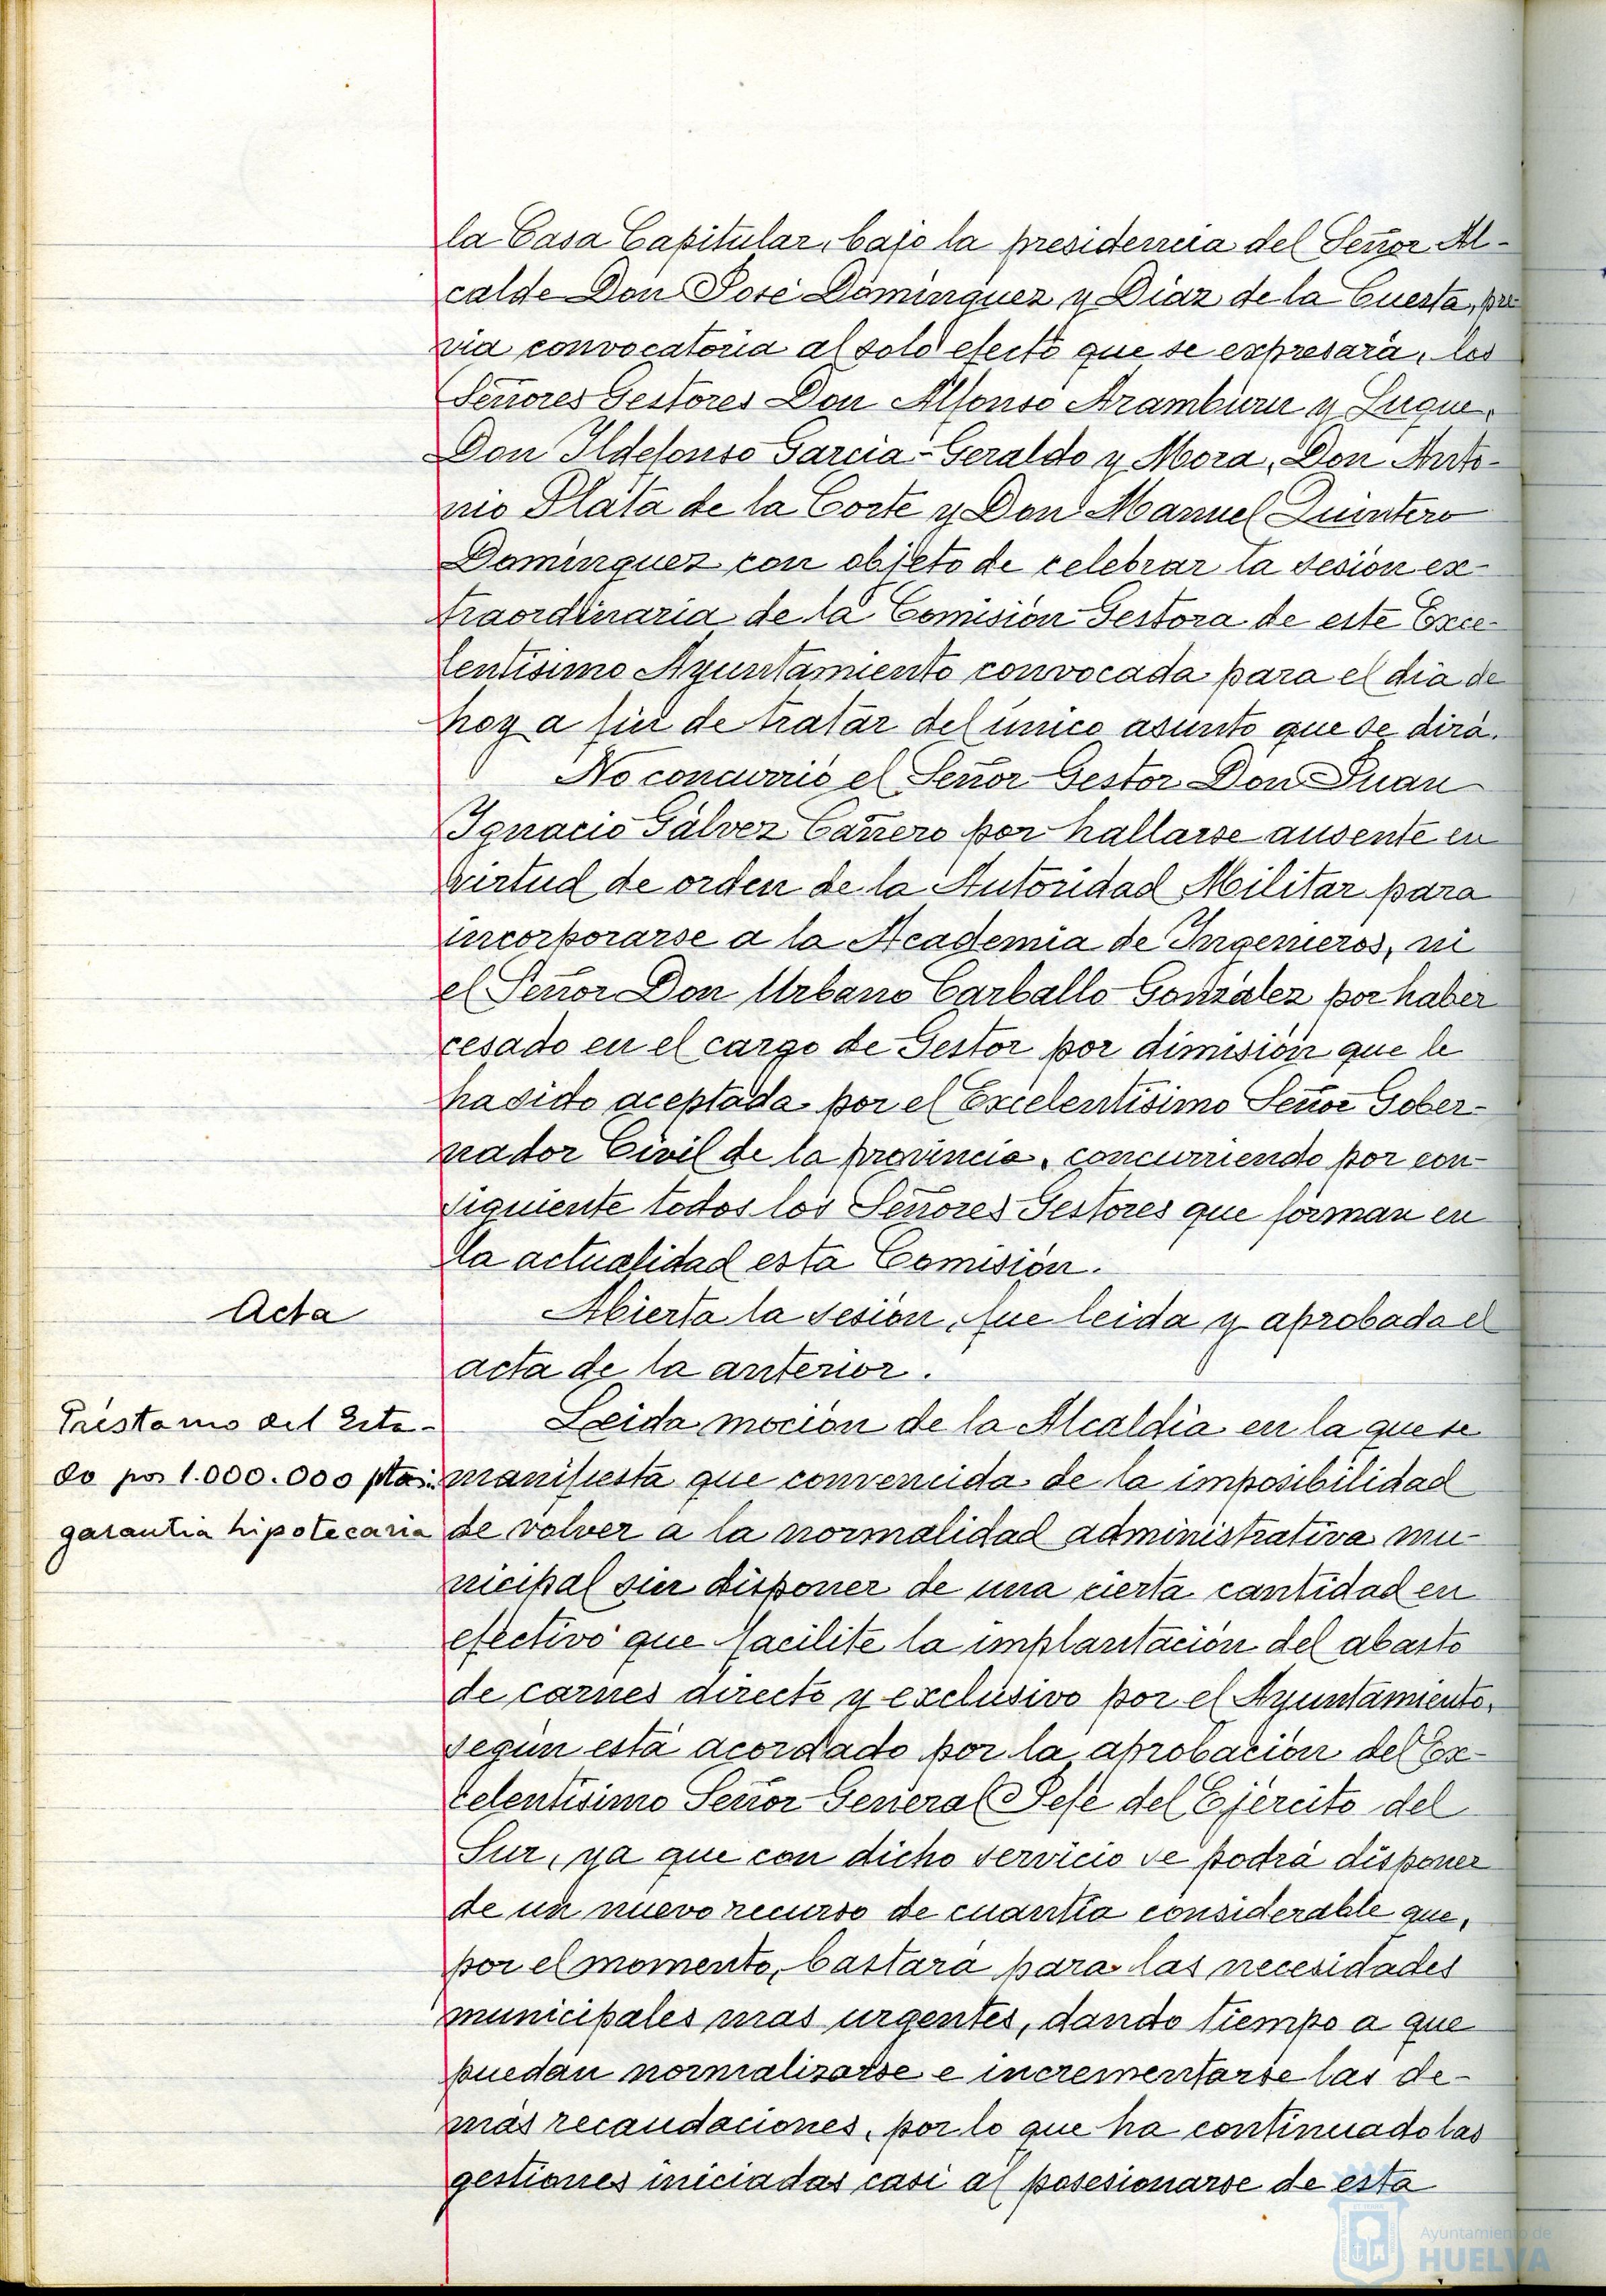 la Casa Capitular, bajo la presidencia del Señor Al-
calde Don José Dominguez y Diaz de la Cuesta, pre
via convocatoria al solo efecto que se expresará, los
Señores Gestores Don Alfonso Aramburu y Luque,
Don Ildefonso Garcia-Geraldo y Mora, Don Anto-
nio Plata de la Corte y Don Manuel Quintero
Dominguez con objeto de celebrar la sesión ex-
traordinaria de la Comisión Gestora de este Exce-
lentisimo Ayuntamiento convocada para el dia de
hoy a fin de tratar del único asunto que se dirá.
No concurrió el Señor Gestor Don Juan
Ignacio Gálvez Cañero por hallarse ausente en
virtud de orden de la Autoridad Militar para
incorporarse a la Academia de Ingenieros, ni
el Señor Don Urbano Carballo González por haber
cesado en el cargo de Gestor por dimisión que le
ha sido aceptada por el Excelentisimo Señor Gober-
nador Civil de la provincia, concurriendo por con-
siguiente todos los Señores Gestores que forman en
la actualidad esta Comisión.
Acta
Abierta la sesión, fue leida y aprobada el
acta de la anterior.
Préstamo del Esta-
do por 1.000.000 ptas.
garantia hipotecaria
Leida moción de la Alcaldia en la que se
manifiesta que convencida de la imposibilidad
de volver a la normalidad administrativa mu-
nicipal sin disponer de una cierta cantidad en
efectivo que facilite la implantación del abasto
de carnes directo y exclusivo por el Ayuntamiento,
según está acordado por la aprobación del Ex-
celentisimo Señor General Jefe del Ejército del
Sur, ya que con dicho servicio se podrá disponer
de un nuevo recurso de cuantia considerable que,
por el momento, bastará para las necesidades
municipales mas urgentes, dando tiempo a que
puedan normalizarse e incrementarse las de-
más recaudaciones, por lo que ha continuado las
gestiones iniciadas casi al posesionarse de esta
Ayuntamiento de
HUELVA